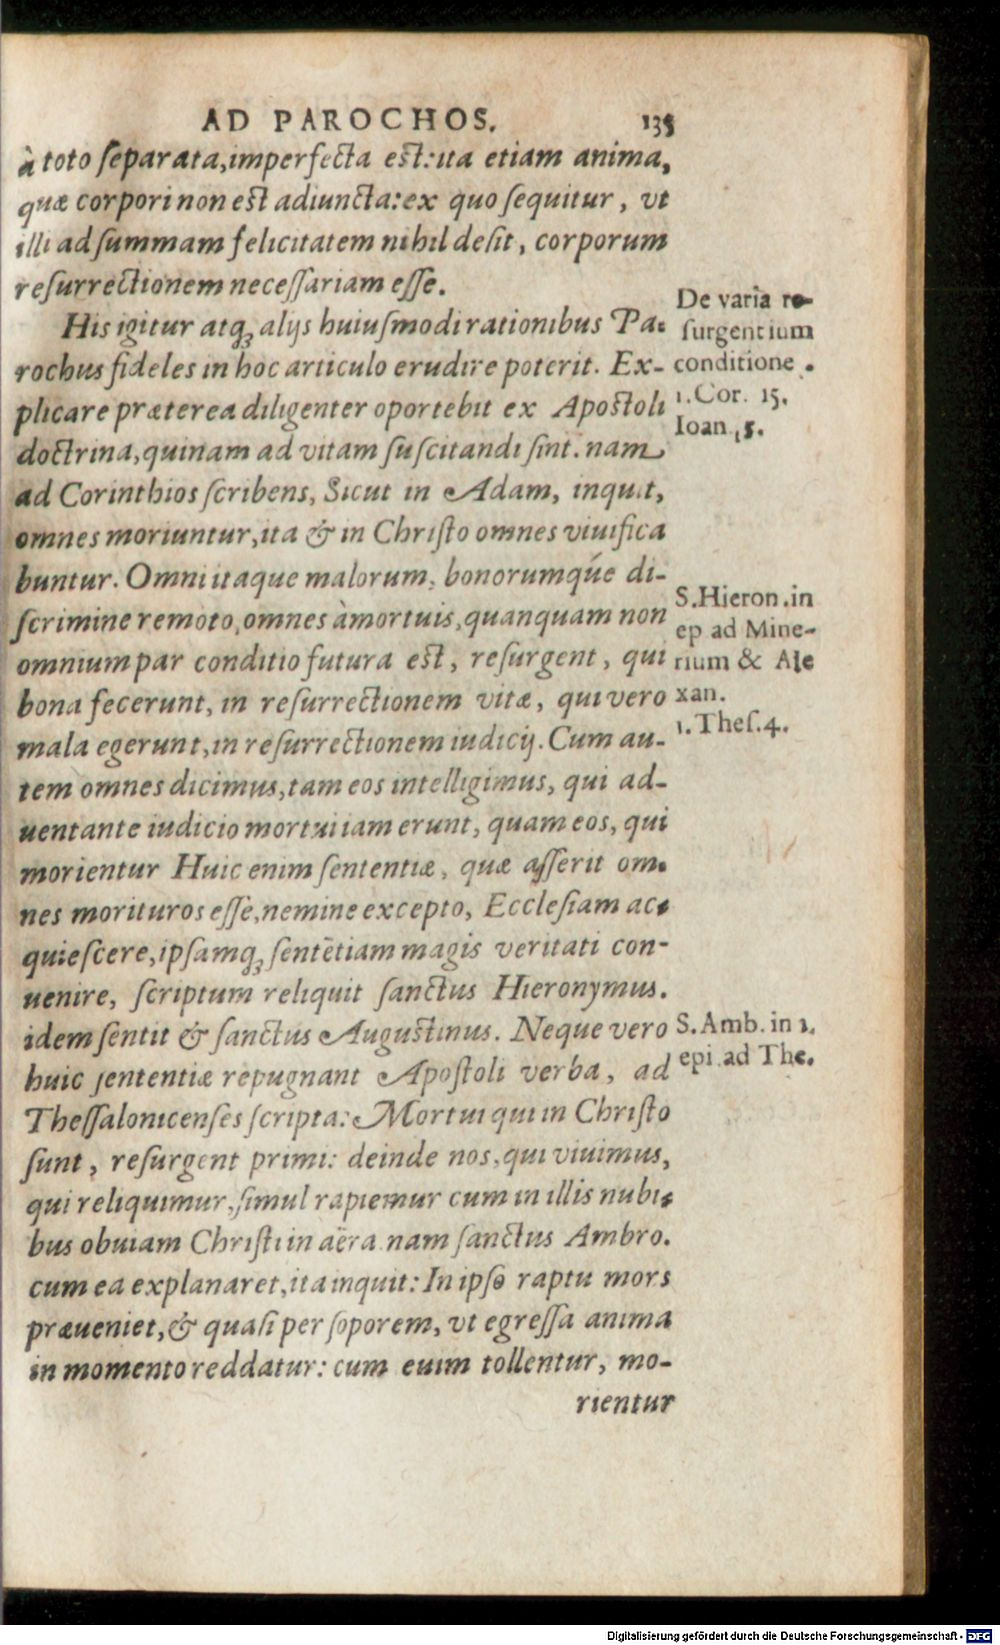 AD PAROCHOS. 135
à toto ſeparata, imperfecta est: ita etiam anima,
quæ corpori non est adiuncta: ex quo ſequitur, vt
illi ad ſummam felicitatem nihil deſit, corporum
reſurrectionem neceſſariam eſſe.
His igitur atq́ꝫ alijs huiuſmodi rationibus Pa-
rochus fideles in hoc articulo erudire poterit. Ex-
plicare præterea diligenter oportebit ex Apostoli
doctrina, quinam ad vitam ſuſcitandi ſint. nam
ad Corinthios ſcribens, Sicut in Adam, inquit,
omnes moriuntur, ita & in Chriſto omnes viuifica
buntur. Omni itaque malorum, bonorumqúe di-
ſcrimine remoto, omnes à mortuis, quanquam non
omnium par conditio futura est, reſurgent, qui
bona fecerunt, in reſurrectionem vitæ, qui vero
mala egerunt, in reſurrectionem iudicij. Cum au-
tem omnes dicimus, tam eos intelligimus, qui ad-
uentante iudicio mortui iam erunt, quam eos, qui
morientur Huic enim ſententiæ, quæ aſſerit om-
nes morituros eſſe, nemine excepto, Eccleſiam ac-
quieſcere, ipſamq́ꝫ ſentētiam magis veritati con-
uenire, ſcriptum reliquit ſanctus Hieronymus.
idem ſentit & ſanctus Augustinus. Neque vero
huic ſententiæ repugnant Apoſtoli verba, ad
Theſſalonicenſes ſcripta: Mortui qui in Chriſto
ſunt, reſurgent primi: deinde nos, qui viuimus,
qui reliquimur, ſimul rapiemur cum in illis nubi-
bus obuiam Chriſti in aëra. nam ſanctus Ambro.
cum ea explanaret, ita inquit: In ipſo raptu mors
præueniet, & quaſi per ſoporem, vt egreſſa anima
in momento reddatur: cum euim tollentur, mo-
rientur
De varia re-
ſurgentium
conditione.
1. Cor. 15.
Ioan. 5.
S. Hieron. in
ep ad Mine-
rium & Ale
xan.
1. Theſ. 4.
S. Amb. in 1.
epi. ad The.
Digitalisierung gefördert durch die Deutsche Forschungsgemeinschaft - DFG